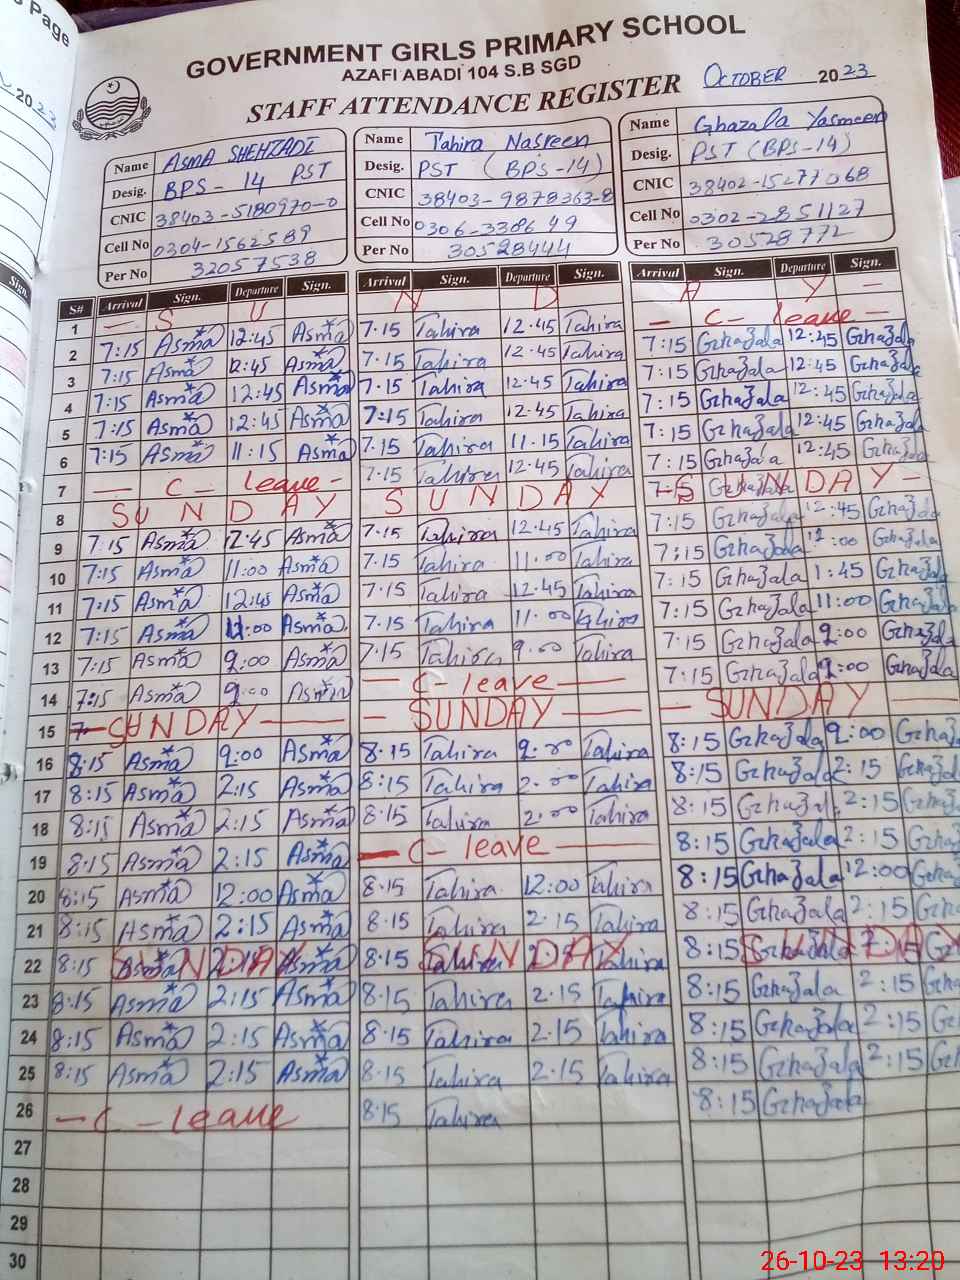 s page
2023
Sign.
GOVERNMENT GIRLS PRIMARY SCHOOL
AZAFI ABADI 104 S.B SGD
STAFF ATTENDANCE REGISTER OCTOBER 2023
Name ASMA SHEHZADI Name Tahira Nasreen Name Ghazala Yasmeen
Desig. BPS - 14 PST Desig. PST (BPS-14) Desig. PST (BPS-14)
CNIC 38403-5180970-0 CNIC 38403-9878363-8 CNIC 38402-1527706 8
Cell No 0304-1562589 Cell No 0306-3386499 Cell No 0302-2851127
Per No 32057538 Per No 30528444 Per No 30528772
S# Arrival Sign. Departure Sign. Arrival Sign. Departure Sign. Arrival Sign. Departure Sign.
1 — S U N D A Y —
2 7:15 Asma 12:45 Asma 7.15 Tahira 12.45 Tahira — C- leave —
3 7:15 Asma 12:45 Asma 7.15 Tahira 12.45 Tahira 7:15 Gzhazala 12:45 Gzhazala
4 7:15 Asma 12:45 Asma 7.15 Tahira 12.45 Tahira 7:15 Gzhazala 12:45 Gzhazala
5 7:15 Asma 12:45 Asma 7:15 Tahira 12.45 Tahira 7:15 Gzhazala 12:45 Gzhazala
6 7:15 Asma 11:15 Asma 7.15 Tahira 11.15 Tahira 7:15 Gzhazala 12:45 Gzhazala
7 — C- leave - 7.15 Tahira 12.45 Tahira 7:15 Gzhazala 12:45 Gzhazala
8 SUNDAY SUNDAY SUNDAY -
9 7:15 Asma 12:45 Asma 7.15 Tahira 12.45 Tahira 7:15 Gzhazala 12:45 Gzhazala
10 7:15 Asma 11:00 Asma 7.15 Tahira 11.00 Tahira 7:15 Gzhazala :00 Gzhazala
11 7:15 Asma 12:45 Asma 7.15 Tahira 12.45 Tahira 7:15 Gzhazala 1:45 Gzhazala
12 7:15 Asma 11:00 Asma 7.15 Tahira 11.00 Tahira 7:15 Gzhazala 11:00 Gzhazala
13 7:15 Asma 9:00 Asma 7.15 Tahira 9.00 Tahira 7:15 Gzhazala 9:00 Gzhazala
14 7:15 Asma 9:00 Asma — C- leave — 7:15 Gzhazala 9:00 Gzhazala
15 — SUNDAY — — SUNDAY — — SUNDAY —
16 8:15 Asma 9:00 Asma 8.15 Tahira 9.00 Tahira 8:15 Gzhazala 9:00 Gzhazala
17 8:15 Asma 2:15 Asma 8:15 Tahira 2.00 Tahira 8:15 Gzhazala 2:15 Gzhazala
18 8:15 Asma 2:15 Asma 8.15 Tahira 2.00 Tahira 8:15 Gzhazala 2:15 Gzhazala
19 8:15 Asma 2:15 Asma — C- leave — 8:15 Gzhazala 2:15 Gzhazala
20 8:15 Asma 12:00 Asma 8.15 Tahira 12:00 Tahira 8:15 Gzhazala 12:00 Gzhazala
21 8:15 Asma 2:15 Asma 8.15 Tahira 2.15 Tahira 8:15 Gzhazala 2:15 Gzhazala
22 8:15 SUNDAY 8.15 SUNDAY 8:15 SUNDAY
23 8:15 Asma 2:15 Asma 8.15 Tahira 2.15 Tahira 8:15 Gzhazala 2:15 Gzha
24 8:15 Asma 2:15 Asma 8.15 Tahira 2.15 Tahira 8:15 Gzhazala 2:15 Gz
25 8:15 Asma 2:15 Asma 8.15 Tahira 2.15 Tahira 8:15 Gzhazala 2:15 Gzh
26 — C - leave 8.15 Tahira 8:15 Gzhazala
27
28
29
30
26-10-23 13:20